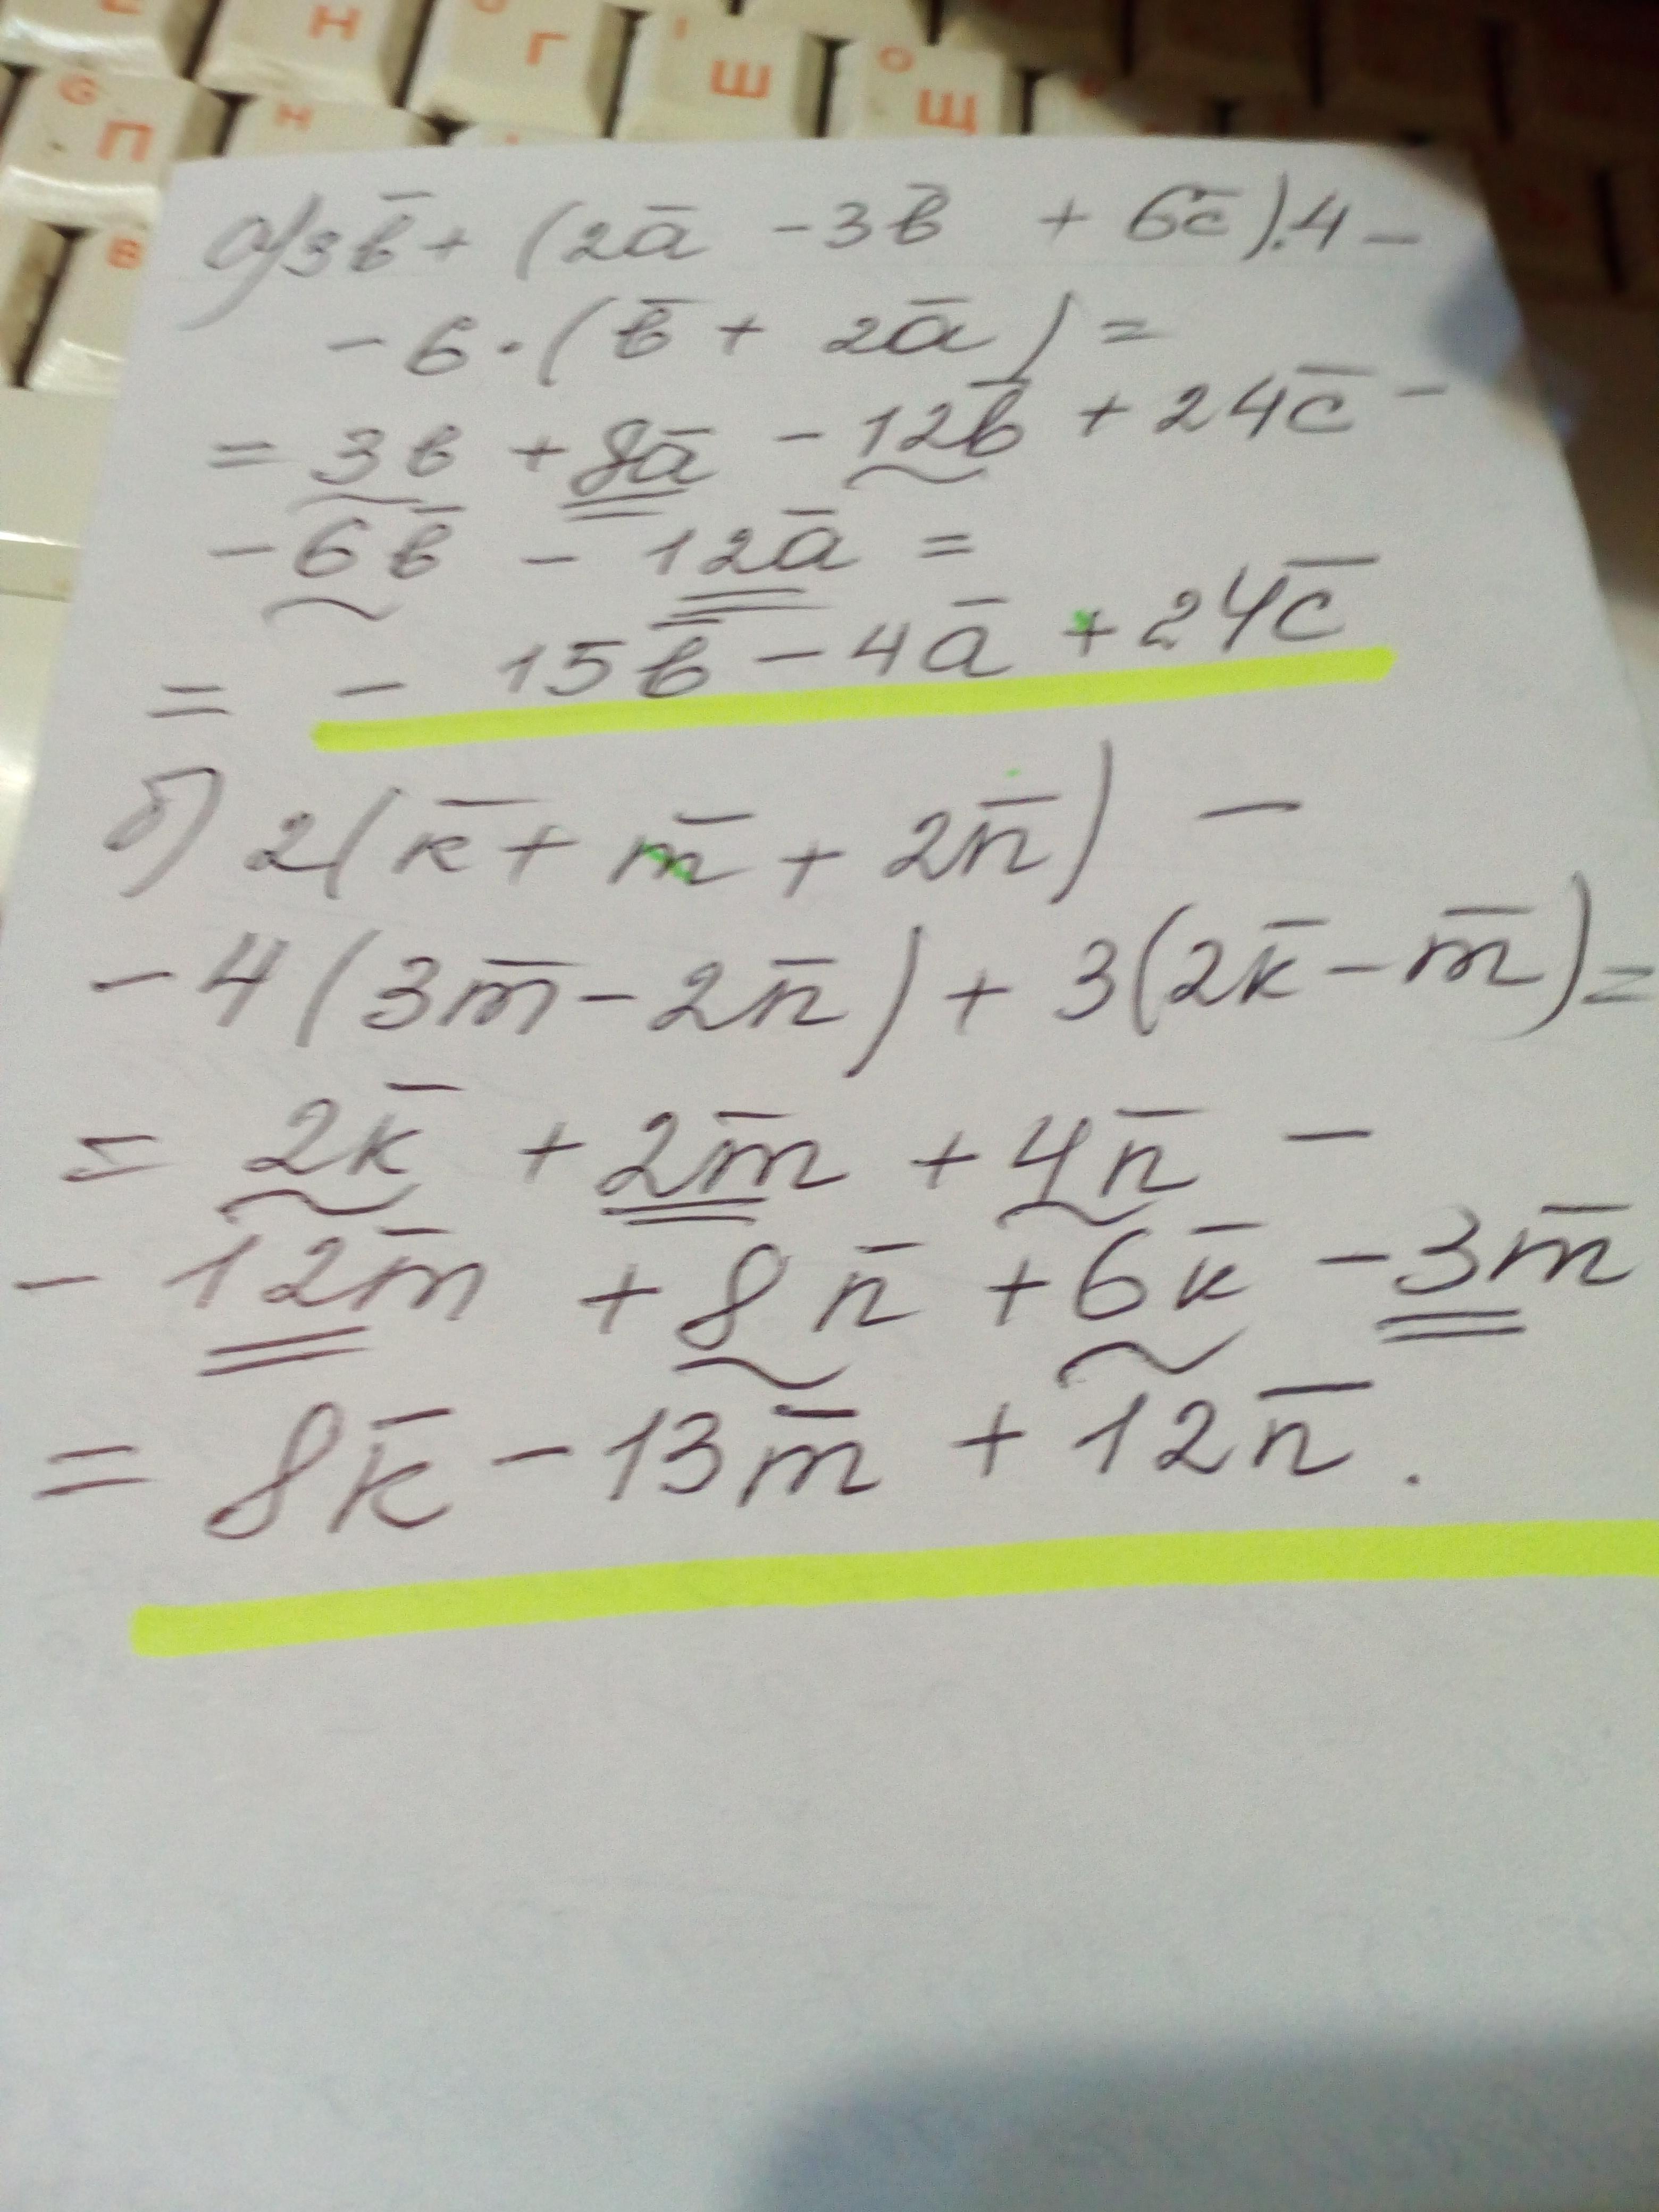 Н Г Ш Щ
G П Н
В
а) 3b̄ + (2ā - 3b̄ + 6c̄)·4 -
- 6·(b̄ + 2ā) =
= 3b + 8ā - 12b̄ + 24c̄ -
- 6b̄ - 12ā =
= - 15b̄ - 4ā + 24c̄
б) 2(k̄ + m̄ + 2n̄) -
- 4(3m̄ - 2n̄) + 3(2k̄ - m̄) =
= 2k̄ + 2m̄ + 4n̄ -
- 12m̄ + 8n̄ + 6k̄ - 3m̄
= 8k̄ - 13m̄ + 12n̄.